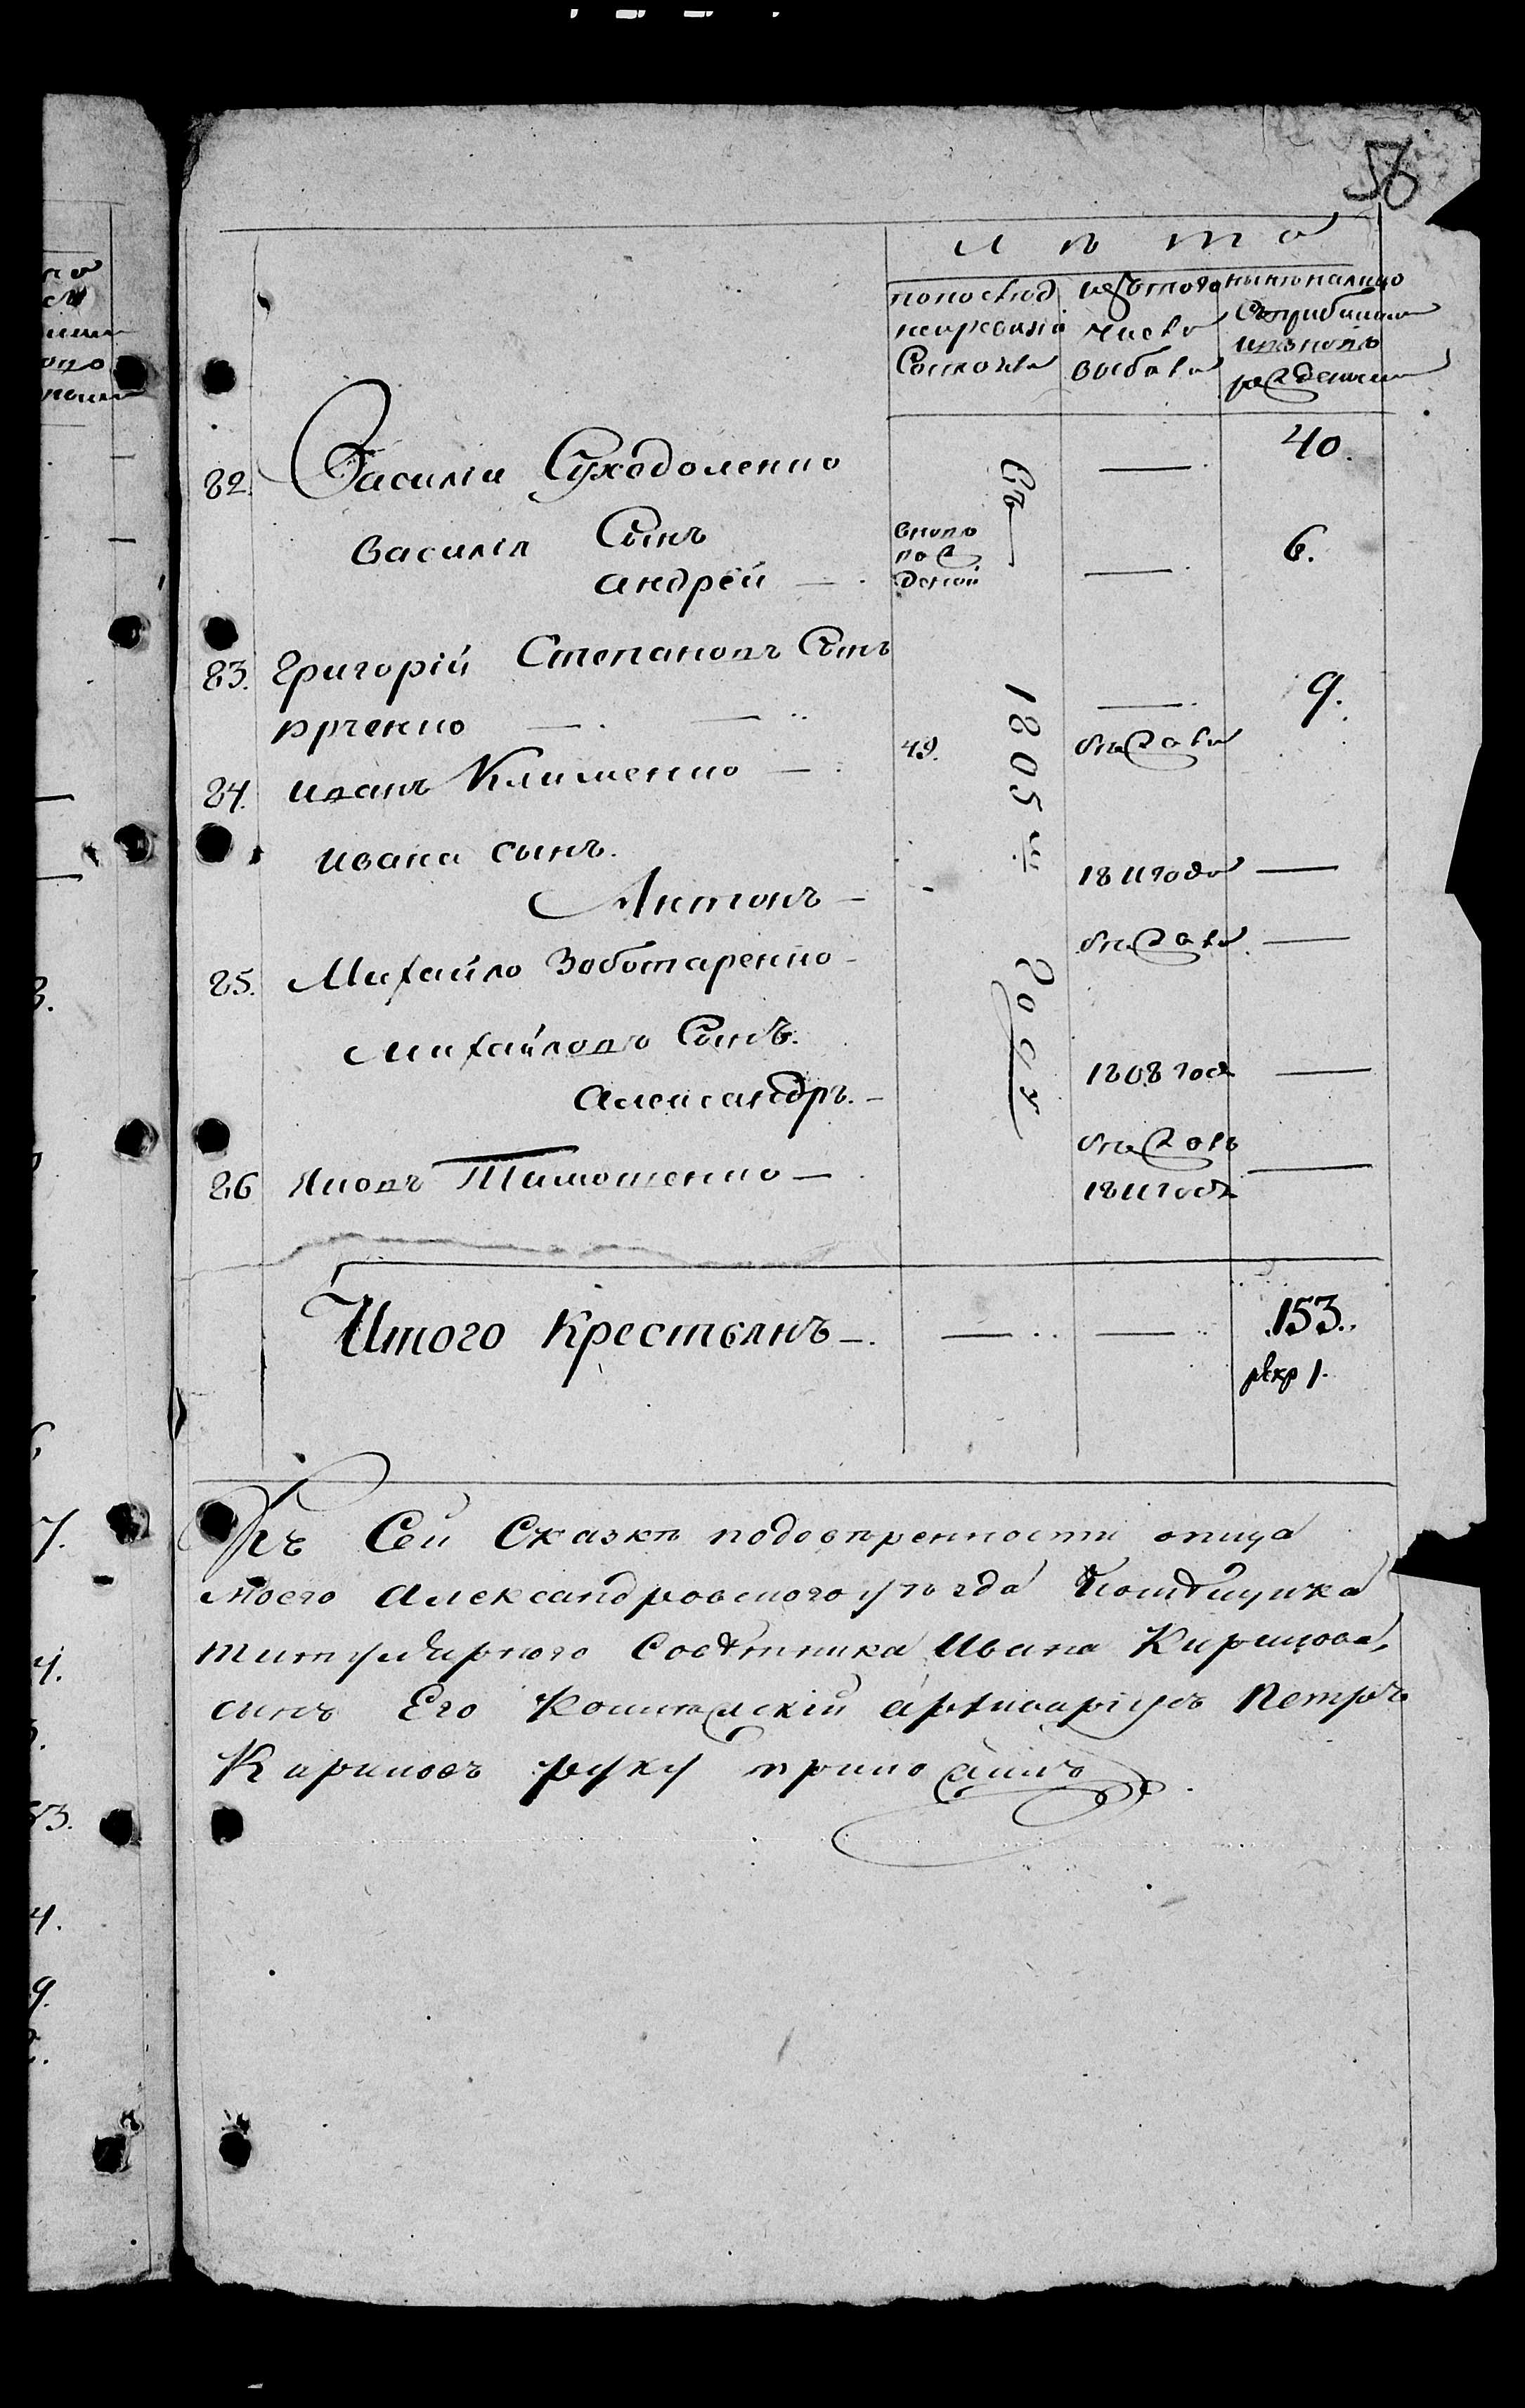 56
лѣта
попослѣд неиревизiи Состоялъ
изътого числа выбыло
нынѣналицо Съприбылыми ивновь рожденными
82. Василiй Суходоленко — 40.
Василiя Сынъ
Андрей — вново рожденой — 6.
Съ 1805 го года
83. Григорiй Степановъ Сынъ
— — — 9.
84. Иванъ Клименко — 49. бѣжалъ
Ивана сынъ.
Антонъ — 1811 года —
85. Михайло Зоботаренко — бѣжалъ —
Михайловъ Сынъ.
Александръ. — 1808 год —
86 Яковъ Тимошенко — бѣжалъ 1811 годъ —
Итого Крестьянъ — — — 153.
рекр 1.
Къ Сей Сказкѣ подовѣренности отца
моего Александровского уѣзда Помѣщика
титулярного Совѣтника Ивана Кирилова,
сынъ Его архиварiусъ Петръ
Кириловъ руку приложилъ